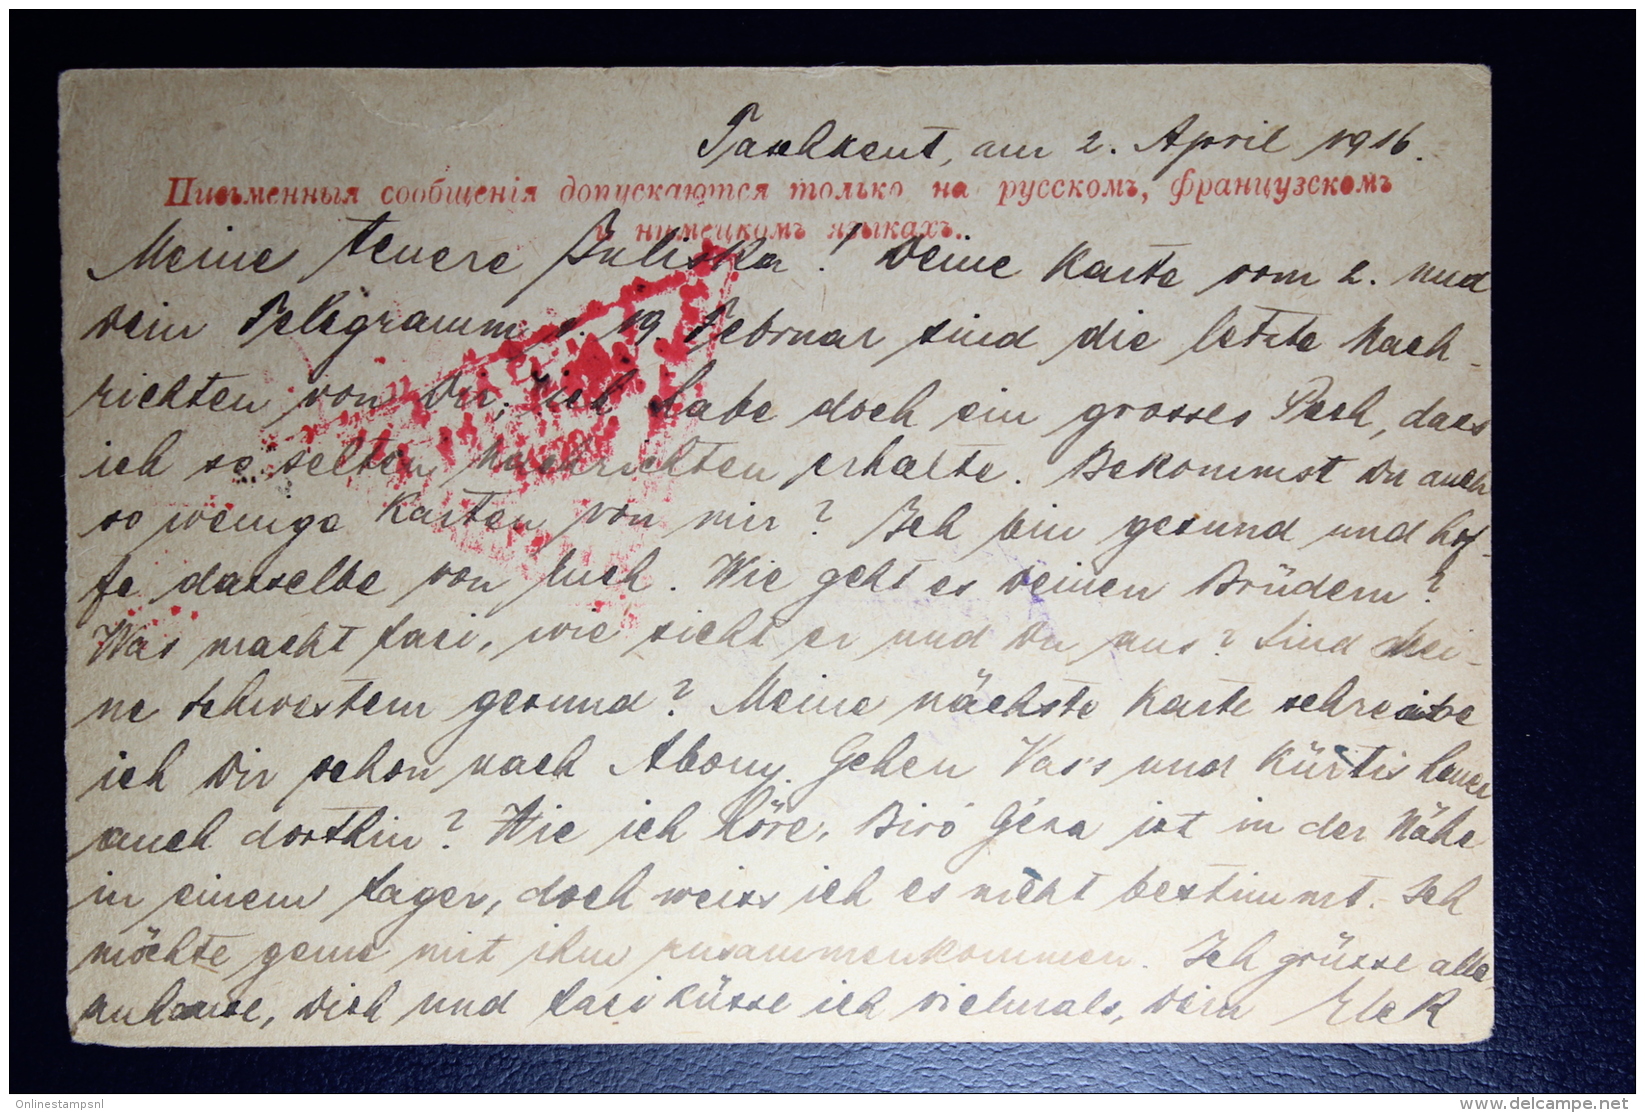 Taschkent, am 2. April 1916.
Письменныя сообщенія допускаются только на русскомъ, французскомъ
и нѣмецкомъ языкахъ.
Meine teuere Juliska! Deine Karte vom 2. und
Dein Telegramm v. 19. Februar sind die letzte Nach-
richten von Dir; ich habe doch ein grosses Pech, dass
ich so selten Nachrichten erhalte. Bekommst Du auch
so wenige Karten von mir? Ich bin gesund und hof-
fe dasselbe von Euch. Wie geht es Deinen Brüdern?
Was macht Laci, wie sieht er und Du aus? Sind Mei-
ne Schwestern gesund? Meine nächste Karte schreibe
ich Dir schon nach Abony. Gehen Vass und Kürtis heuer
auch dorthin? Wie ich höre, Biró Géza ist in der Nähe
in einem Lager, doch weiss ich es nicht bestimmt. Ich
möchte gerne mit ihm zusammenkommen. Ich grüsse alle
zuhause, Dich und Laci küsse ich vielmals, Dein Elek
Onlinestampsnl
delcampe.net